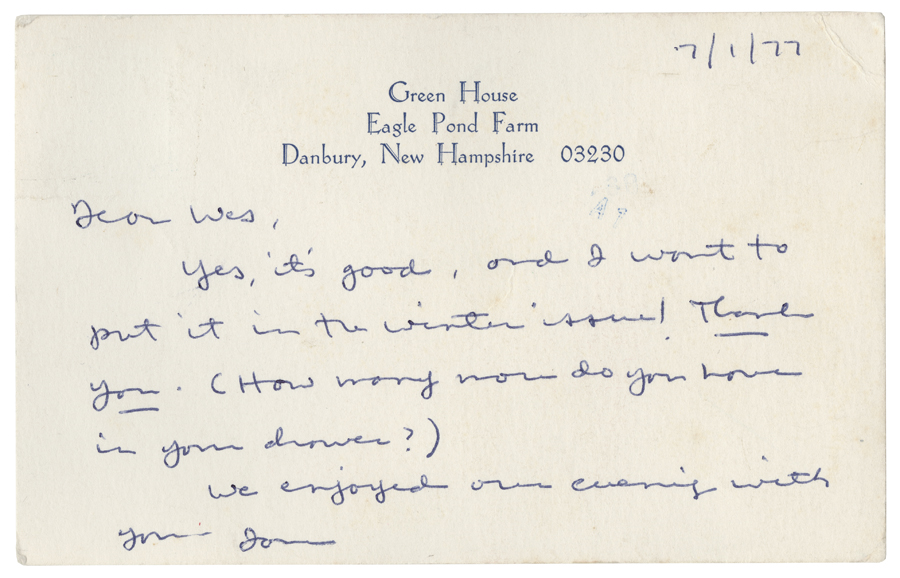 7/1/77
Green House
Eagle Pond Farm
Danbury, New Hampshire 03230
Dear Wes,
Yes, it's good, and I want to
put it in the winter issue! Thank
you. (How many more do you have
in your drawer?)
We enjoyed our evening with
you. Jane